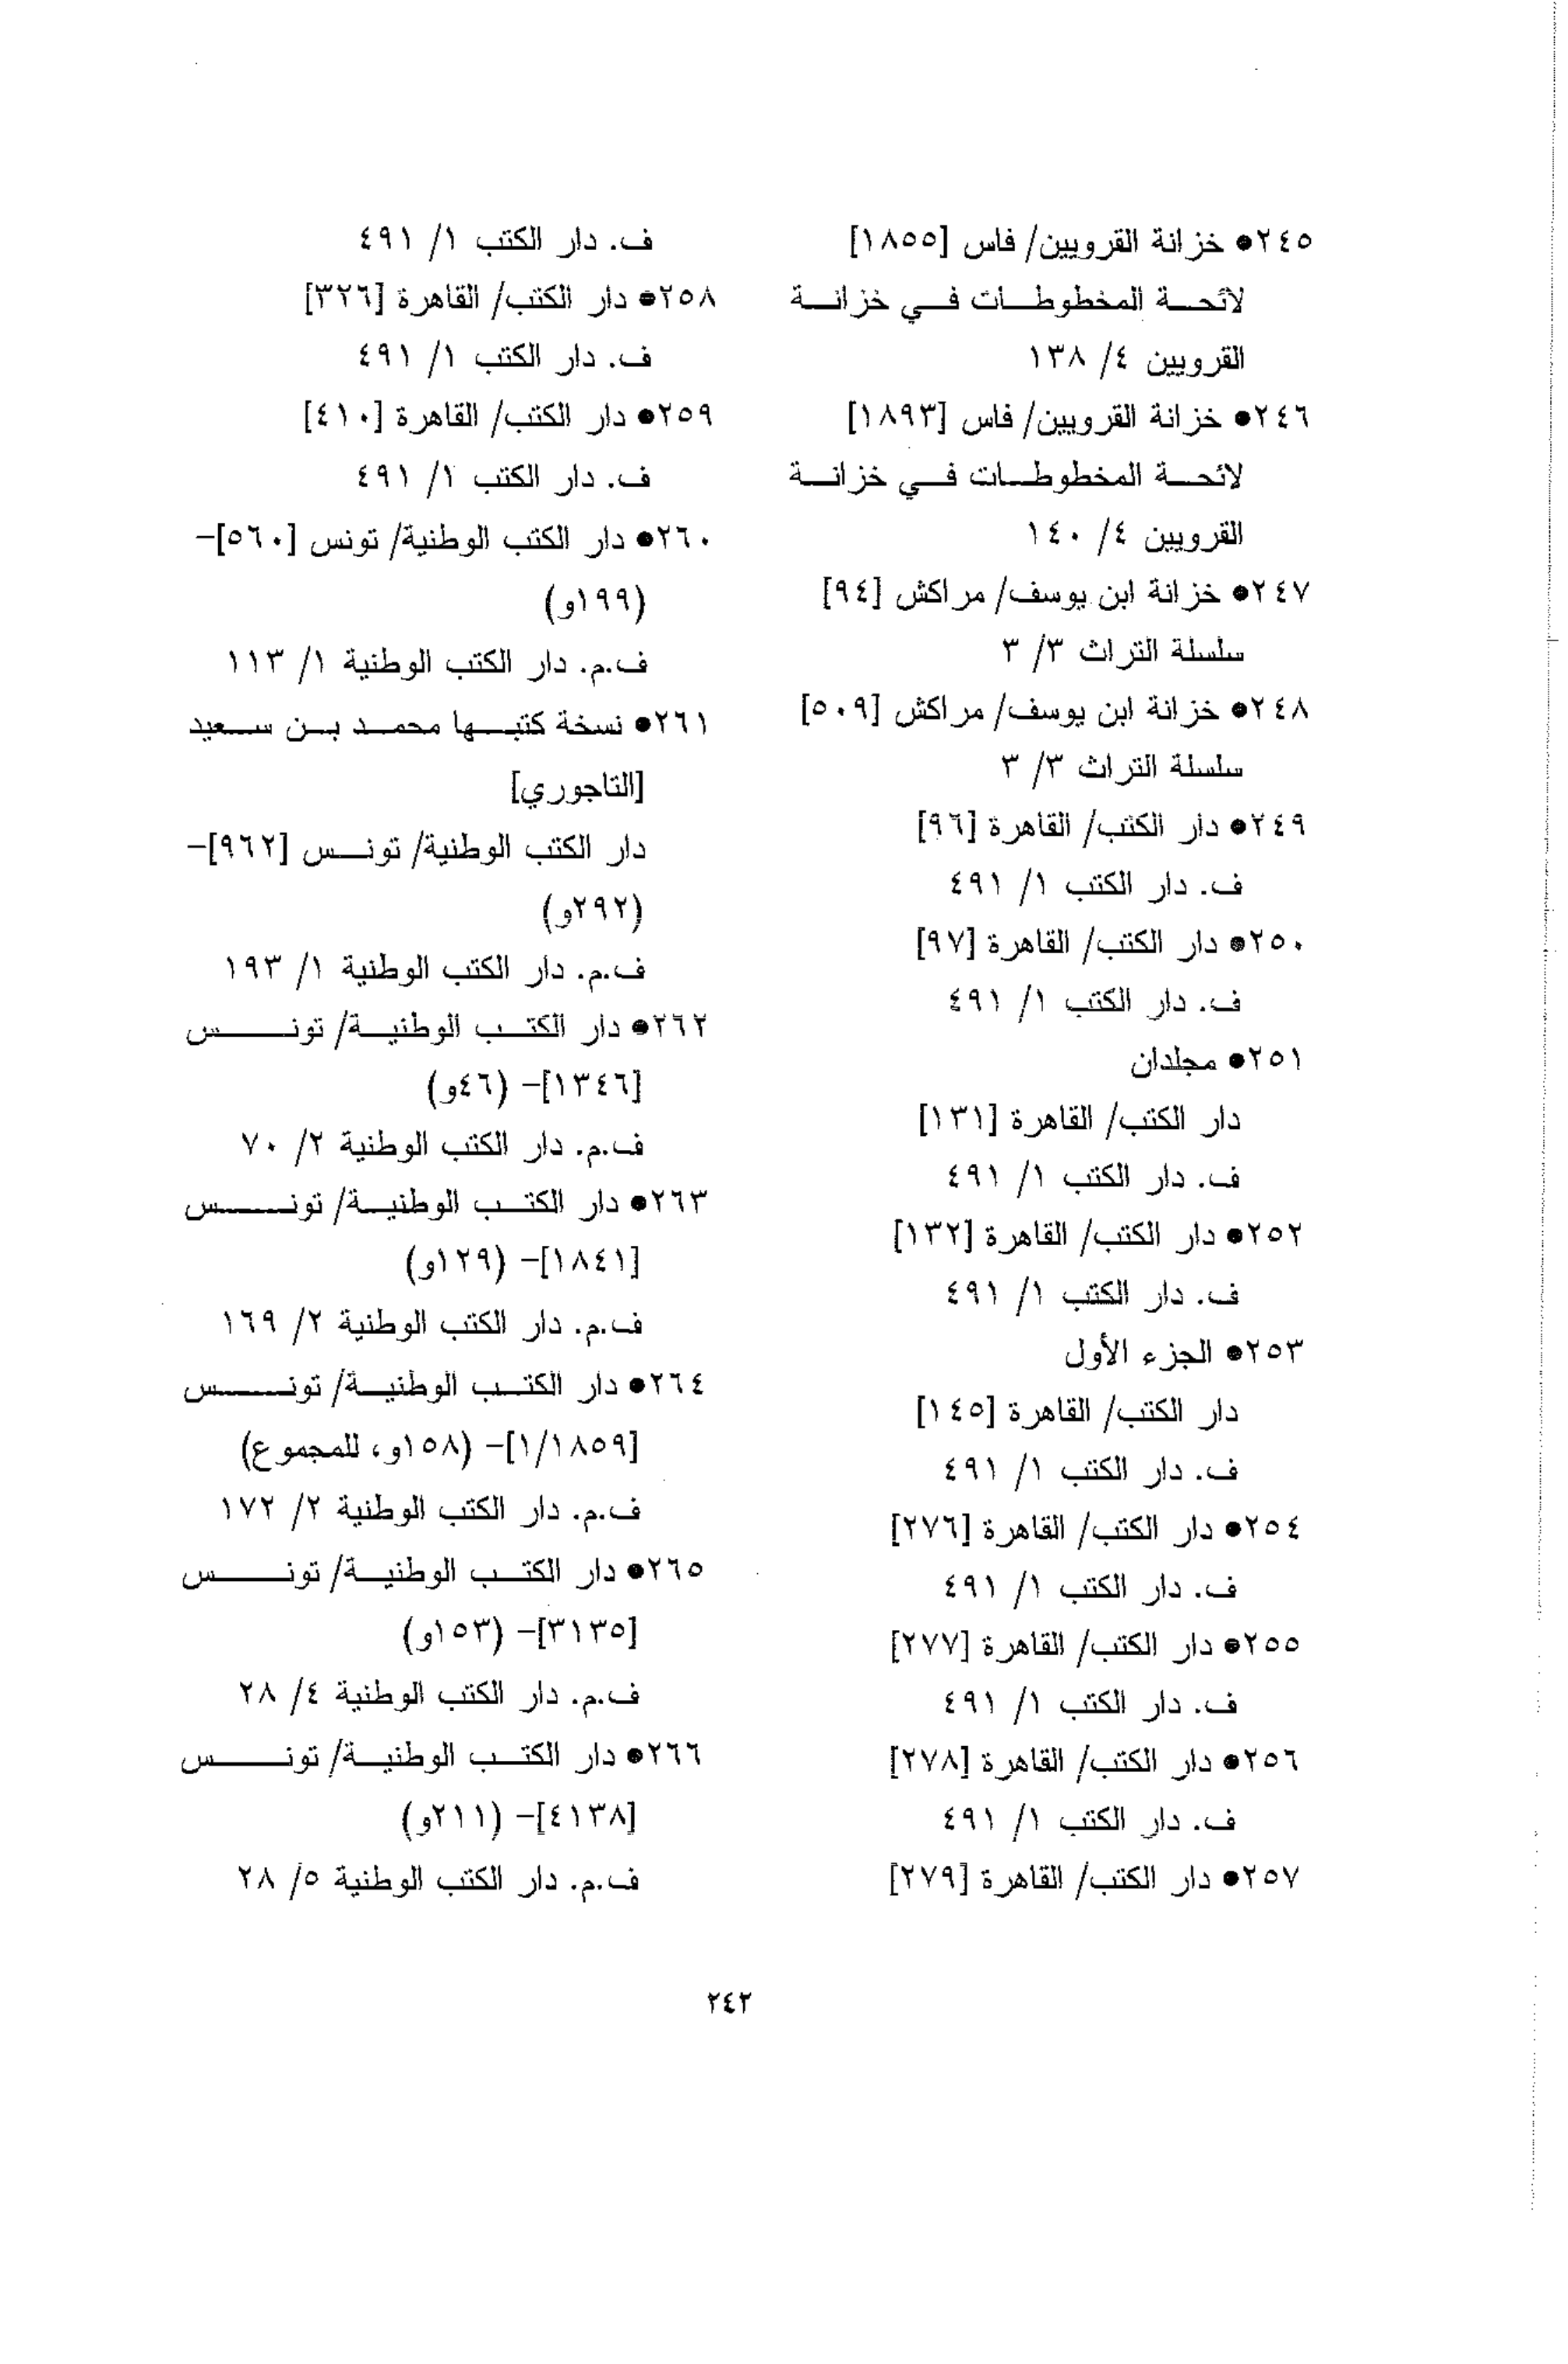 ٢٤٥● خزانة القرويين/ فاس [١٨٥٥]
لائحة المخطوطات في خزانة
القرويين ٤/ ١٣٨
٢٤٦● خزانة القرويين/ فاس [١٨٩٣]
لائحة المخطوطات في خزانة
القرويين ٤/ ١٤٠
٢٤٧● خزانة ابن يوسف/ مراكش [٩٤]
سلسلة التراث ٣/ ٣
٢٤٨● خزانة ابن يوسف/ مراكش [٥٠٩]
سلسلة التراث ٣/ ٣
٢٤٩● دار الكتب/ القاهرة [٩٦]
ف. دار الكتب ١/ ٤٩١
٢٥٠● دار الكتب/ القاهرة [٩٧]
ف. دار الكتب ١/ ٤٩١
٢٥١● مجلدان
دار الكتب/ القاهرة [١٣١]
ف. دار الكتب ١/ ٤٩١
٢٥٢● دار الكتب/ القاهرة [١٣٢]
ف. دار الكتب ١/ ٤٩١
٢٥٣● الجزء الأول
دار الكتب/ القاهرة [١٤٥]
ف. دار الكتب ١/ ٤٩١
٢٥٤● دار الكتب/ القاهرة [٢٧٦]
ف. دار الكتب ١/ ٤٩١
٢٥٥● دار الكتب/ القاهرة [٢٧٧]
ف. دار الكتب ١/ ٤٩١
٢٥٦● دار الكتب/ القاهرة [٢٧٨]
ف. دار الكتب ١/ ٤٩١
٢٥٧● دار الكتب/ القاهرة [٢٧٩]
ف. دار الكتب ١/ ٤٩١
٢٥٨● دار الكتب/ القاهرة [٣٢٦]
ف. دار الكتب ١/ ٤٩١
٢٥٩● دار الكتب/ القاهرة [٤١٠]
ف. دار الكتب ١/ ٤٩١
٢٦٠● دار الكتب الوطنية/ تونس [٥٦٠]-
(١٩٩و)
ف.م. دار الكتب الوطنية ١/ ١١٣
٢٦١● نسخة كتبها محمد بن سعيد
[التاجوري]
دار الكتب الوطنية/ تونس [٩٦٢]-
(٢٩٢و)
ف.م. دار الكتب الوطنية ١/ ١٩٣
٢٦٢● دار الكتب الوطنية/ تونس
[١٣٤٦]- (٤٦و)
ف.م. دار الكتب الوطنية ٢/ ٧٠
٢٦٣● دار الكتب الوطنية/ تونس
[١٨٤١]- (١٢٩و)
ف.م. دار الكتب الوطنية ٢/ ١٦٩
٢٦٤● دار الكتب الوطنية/ تونس
[١/١٨٥٩]- (١٥٨و، للمجموع)
ف.م. دار الكتب الوطنية ٢/ ١٧٢
٢٦٥● دار الكتب الوطنية/ تونس
[٣١٣٥]- (١٥٣و)
ف.م. دار الكتب الوطنية ٤/ ٢٨
٢٦٦● دار الكتب الوطنية/ تونس
[٤١٣٨]- (٢١١و)
ف.م. دار الكتب الوطنية ٥/ ٢٨
٢٤٢